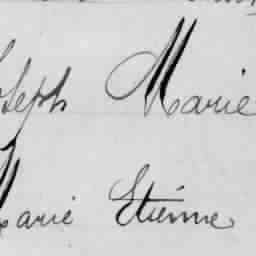 oseph Marie
Marie Etienne